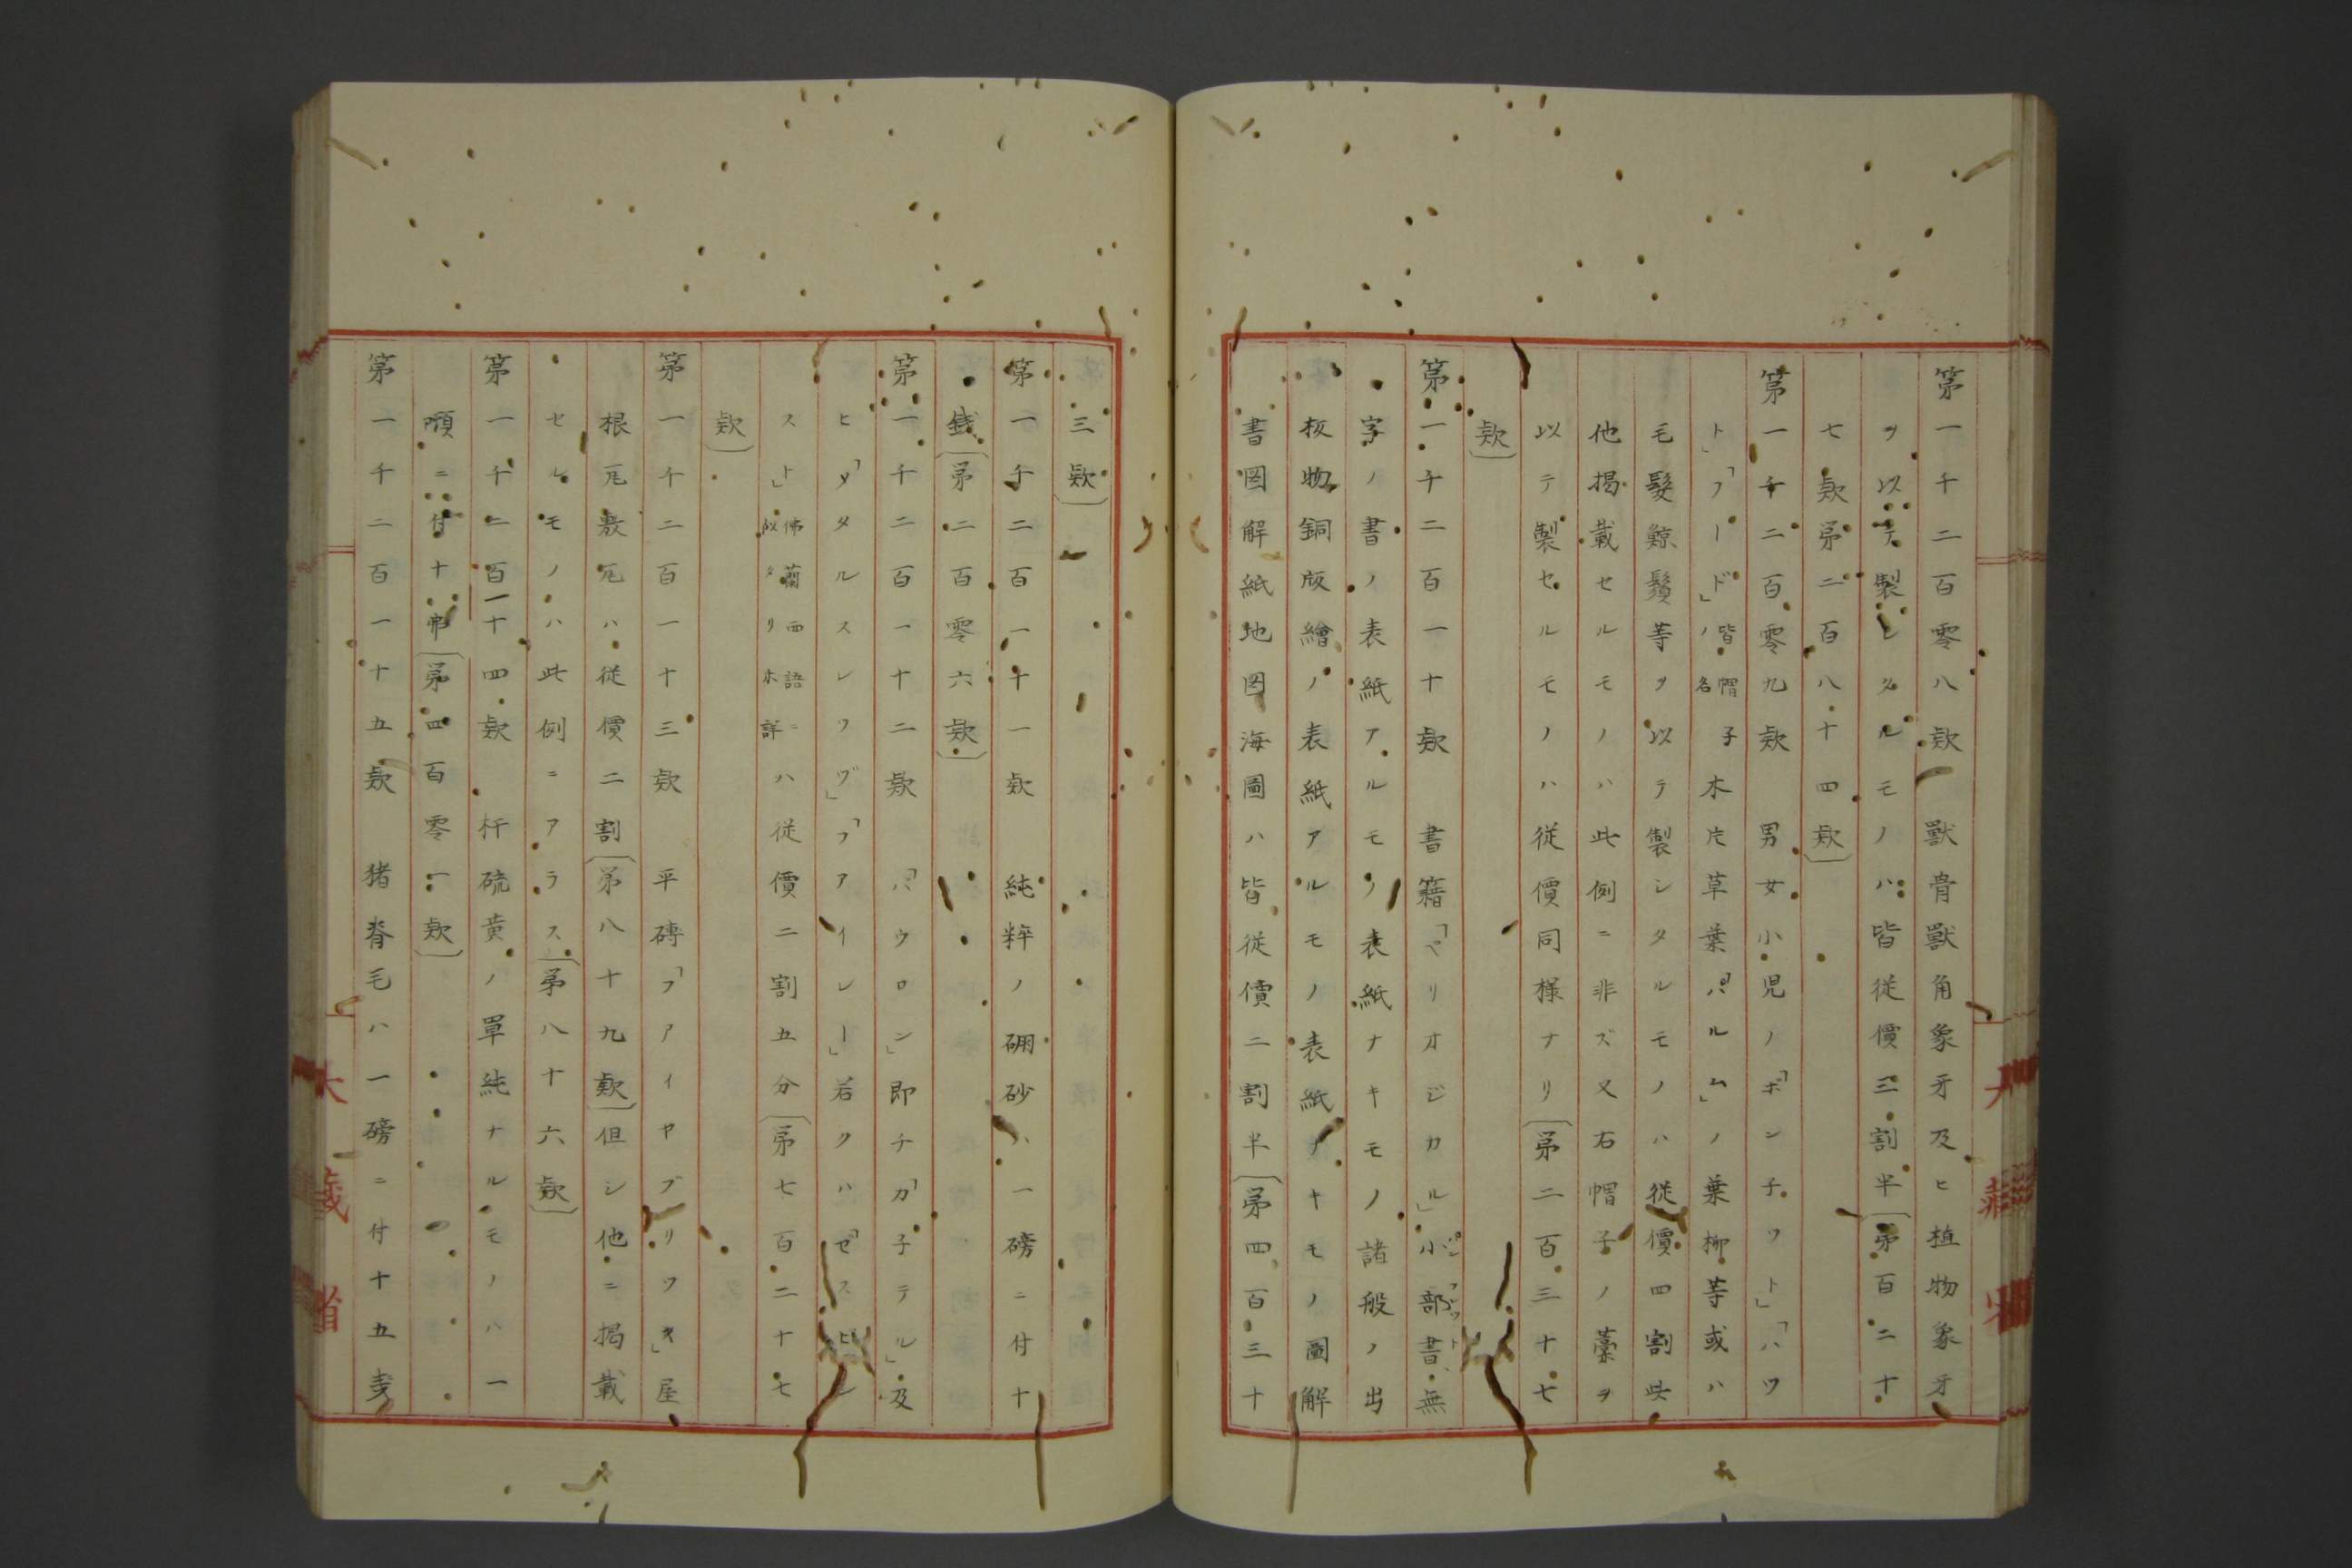 第一千二百零八款　獸骨獸角象牙及ヒ植物象牙
ヲ以テ製シタルモノハ皆従價三割半（第百二十
七款第二百八十四款）
第一千二百零九款　男女小児ノ「ボン子ツト」「ハツ
ト」「フード」皆帽子ノ名木片草葉「パルム」ノ葉柳等或ハ
毛髮鯨鬚等ヲ以テ製シタルモノハ従價四割此
他掲載セルモノハ此例ニ非ズ又右帽子ノ藁ヲ
以テ製セルモノハ従價同様ナリ（第二百三十七
款）
第一千二百一十款　書籍「ペリオジカル」小部書、無
字ノ書ノ表紙アルモノ表紙ナキモノ諸般ノ出
板物銅版繪ノ表紙アルモノ表紙ナキモノ圖解
書圖解紙地圖海圖ハ皆従價二割半（第四百三十
三款）
第一千二百一十一款　純粹ノ硼砂ハ一磅ニ付十
錢（第二百零六款）
第一千二百一十二款　「パウロン」即チ「カ子テル」及
ヒ「メタルスレツヴ」「フアイレー」若クハ
スト」佛蘭西語ニ似タリ未詳ハ従價二割五分（第七百二十七
款）
第一千二百一十三款　平磚「フアイヤブリツキ」屋
根瓦敷瓦ハ従價二割（第八十九款）但シ他ニ掲載
セルモノハ此例ニアラス（第八十六款）
第一千二百一十四款　杆硫黄ノ單純ナルモノハ一
噸ニ付十弗（第四百零一款）
第一千二百一十五款　猪脊毛ハ一磅ニ付十五
大藏省